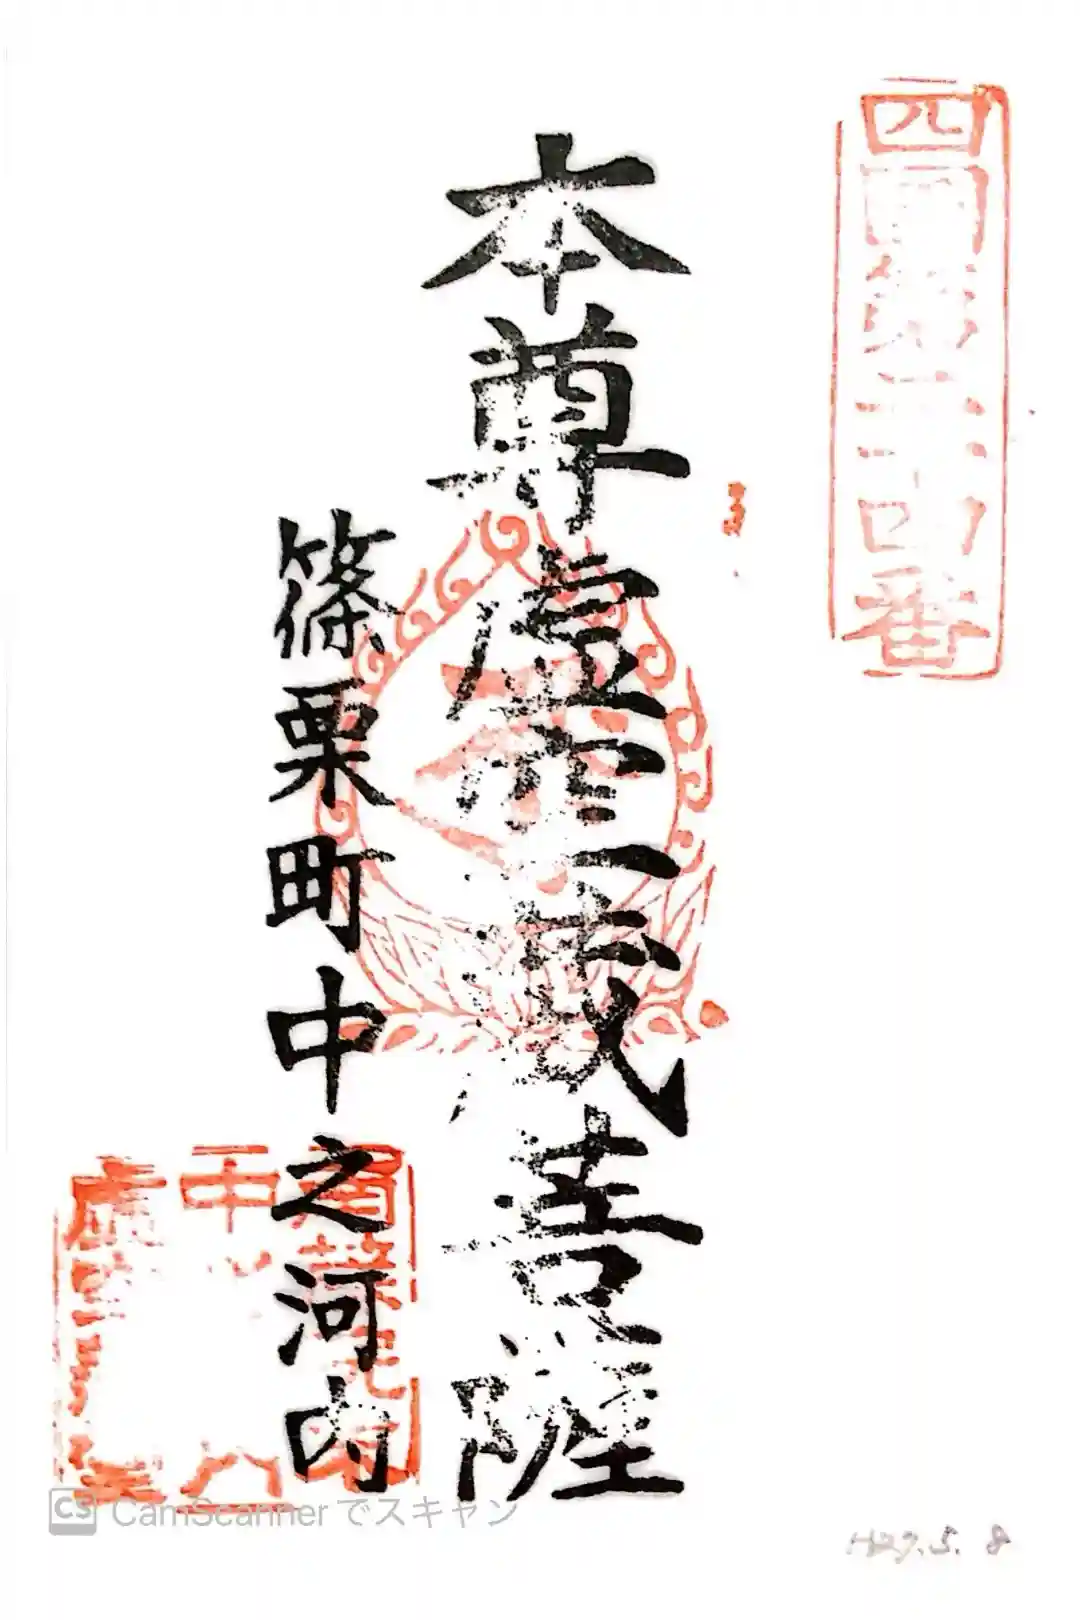 四國第二十四番
本尊虚空蔵菩薩
篠栗町中之河内
CS CamScannerでスキャン
H27.5.8